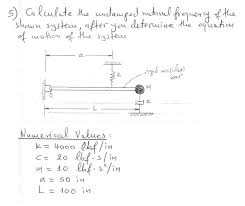 5) Calculate the undamped natural frequency of the
shown system, after you determine the equation
of motion of the system
a
k
rigid massless
bar
m
c
L
Numerical Values:
k = 4000 lbf/in
c = 20 lbf·s/in
m = 10 lbf·s²/in
a = 50 in
L = 100 in